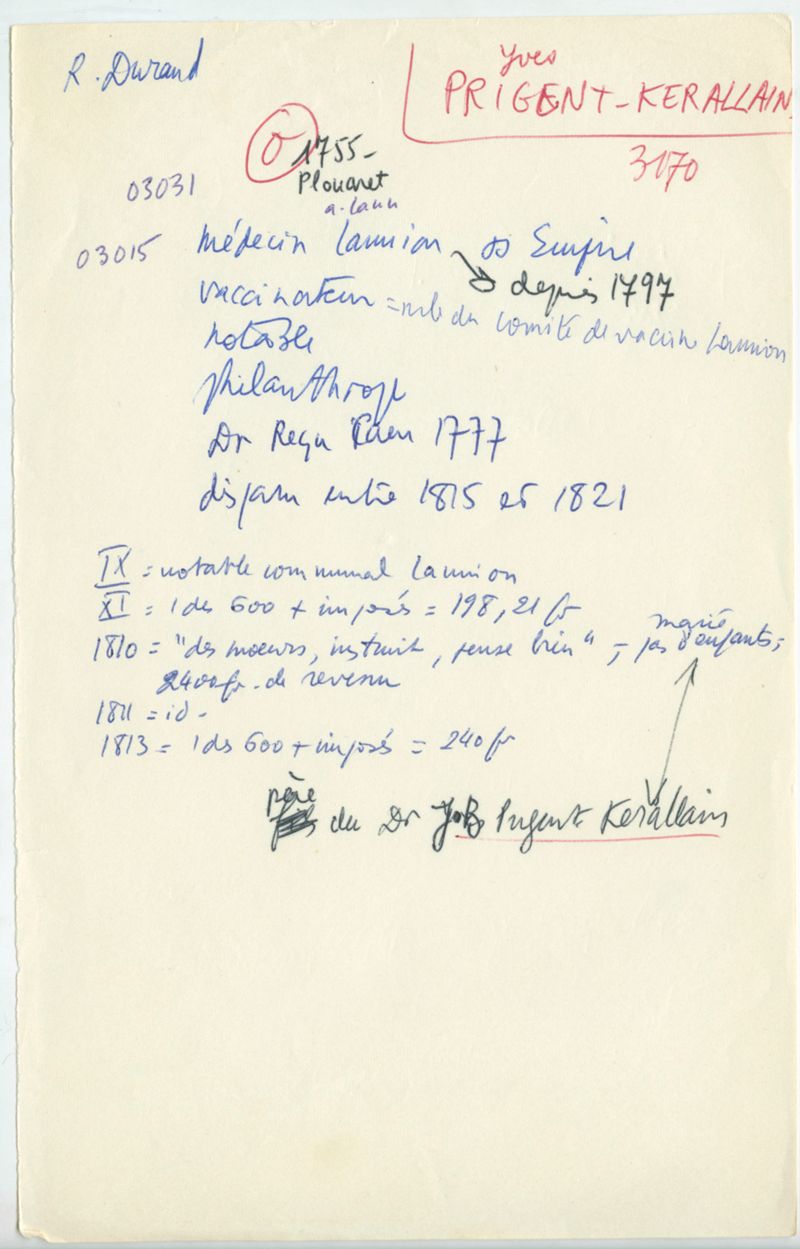 R. Durand
Yves
PRIGENT-KERALLAIN
3170
O 1755-
Plouaret
03031
a. Lann
03015 Médecin Lannion ss Empire
depuis 1797
vaccinateur = mbe du comité de vaccine Lannion
notable
philanthrope
Dr Reçu Caen 1777
disparu entre 1815 et 1821
IX = notable communal Lannion
XI = 1 des 600 + imposés = 198,21 fr
marié
1810 = "des moeurs, instruit, pense bien" = pas d'enfants =
2400 fr. de revenu
1811 = id -
1813 = 1 des 600 + imposés = 240 fr
père
du Dr JB Prigent Kerallain